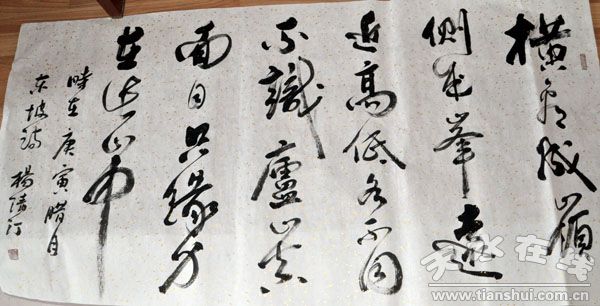 横看成嶺
側成峯遠
近高低各不同
不識廬山真
面目只緣身
在此山中
時在庚寅腊月
东坡詩 楊清汀
天水在线
www.tianshui.com.cn